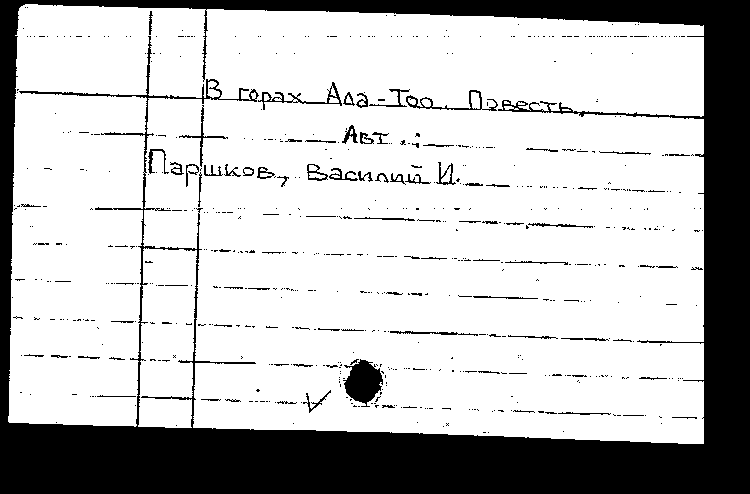 В горах Ала-Тоо. Повесть.
Авт.:
Паршков, Василий И.